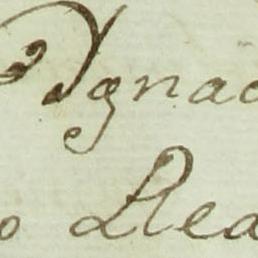 Ignac
o Rea